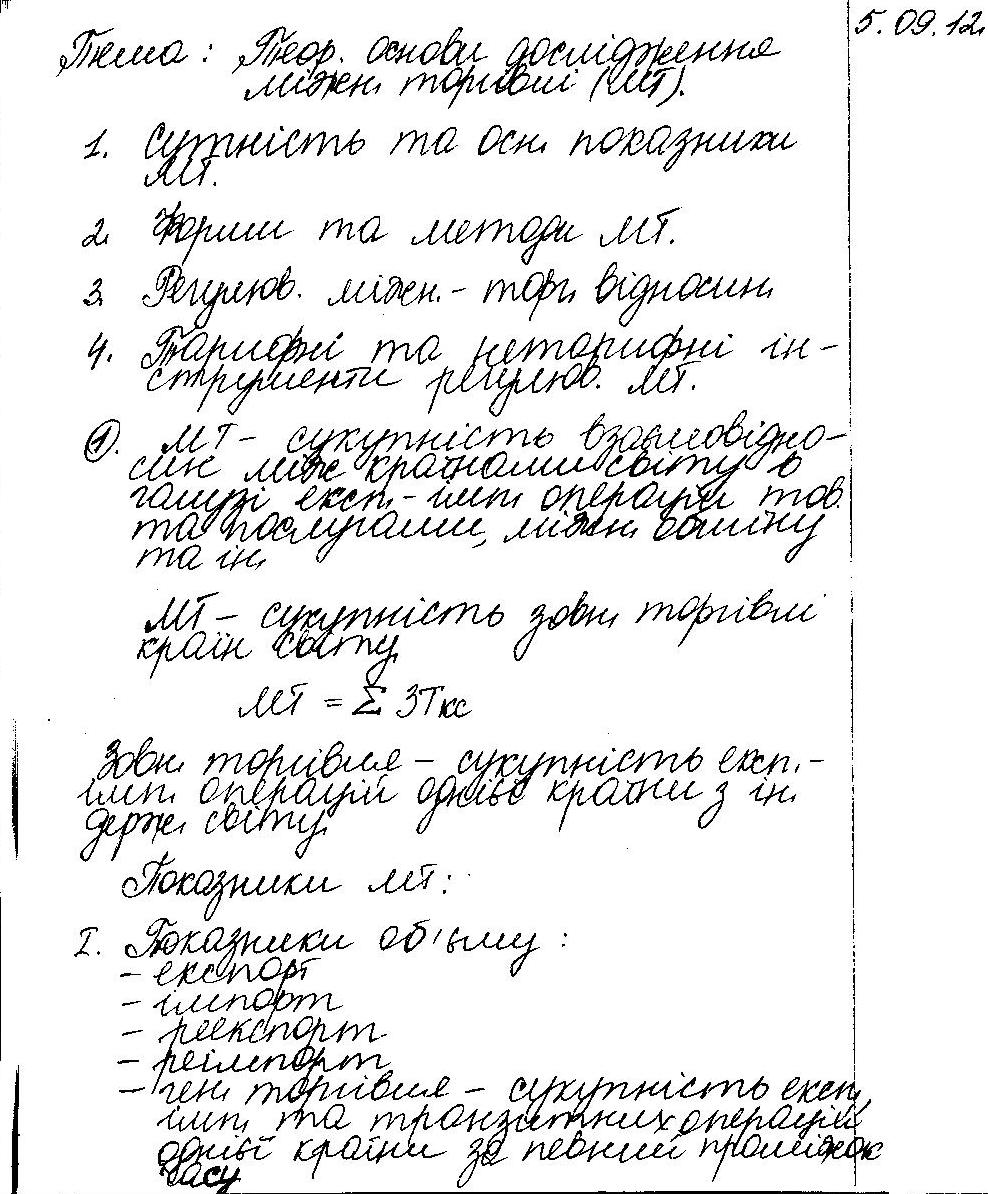 5.09.12.
Тема: Теор. основи дослідження
міжн. торгівлі (МТ).
1. Сутність та осн. показники
МТ.
2. Форми та методи МТ.
3. Регулюв. міжн.-торг. відносин.
4. Тарифні та нетарифні ін-
струменти регулюв. МТ.
1. МТ - сукупність взаємовідно-
син між країнами світу в
галузі експ.-імп. операцій тов.
та послугами, міжн. обміну
та ін.
МТ - сукупність зовн. торгівлі
країн світу.
МТ = Σ ЗТкс
Зовн. торгівля - сукупність експ.-
імп. операцій однієї країни з ін.
держ. світу.
Показники МТ:
I. Показники об'єму:
- експорт
- імпорт
- реекспорт
- реімпорт
- ген. торгівля - сукупність експ.,
імп. та транзитних операцій
однієї країни за певний проміжок
часу